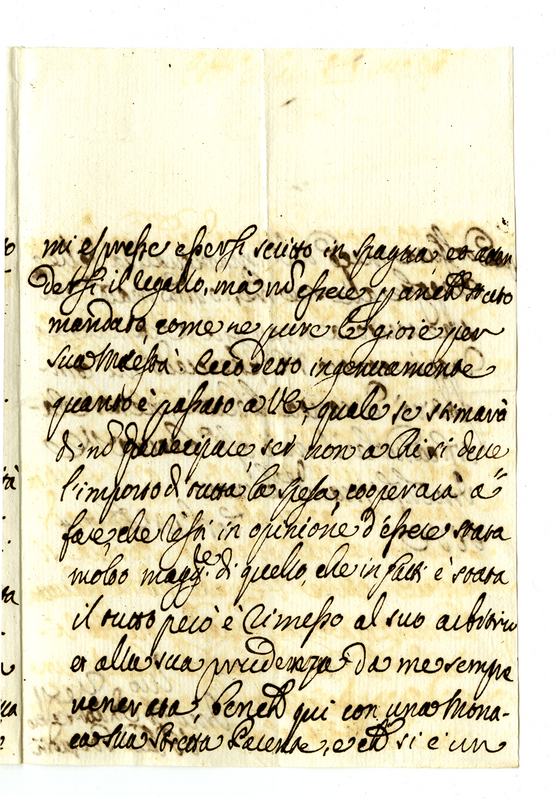 mi espresse essersi scritto in spagna, et atten
dersi il regallo, mà nō essere p anchē stato
mandato, come ne pure le gioie per
sua Maestà: Ecco detto ingenuamente
quanto è passato a VE, quale se stimarà
di nō participare ser non a lui si deve
l'importo di tutta la spesa, cooperarà a
fare, che resti in opinione d'essere stata
molto magg.re di quello, che in fatti è stata
il tutto però è rimesso al suo arbitrio
et alla sua prudenza da me sempre
venerata, benchē qui con una Mona-
ca sua stretta Parente, e chē si è un